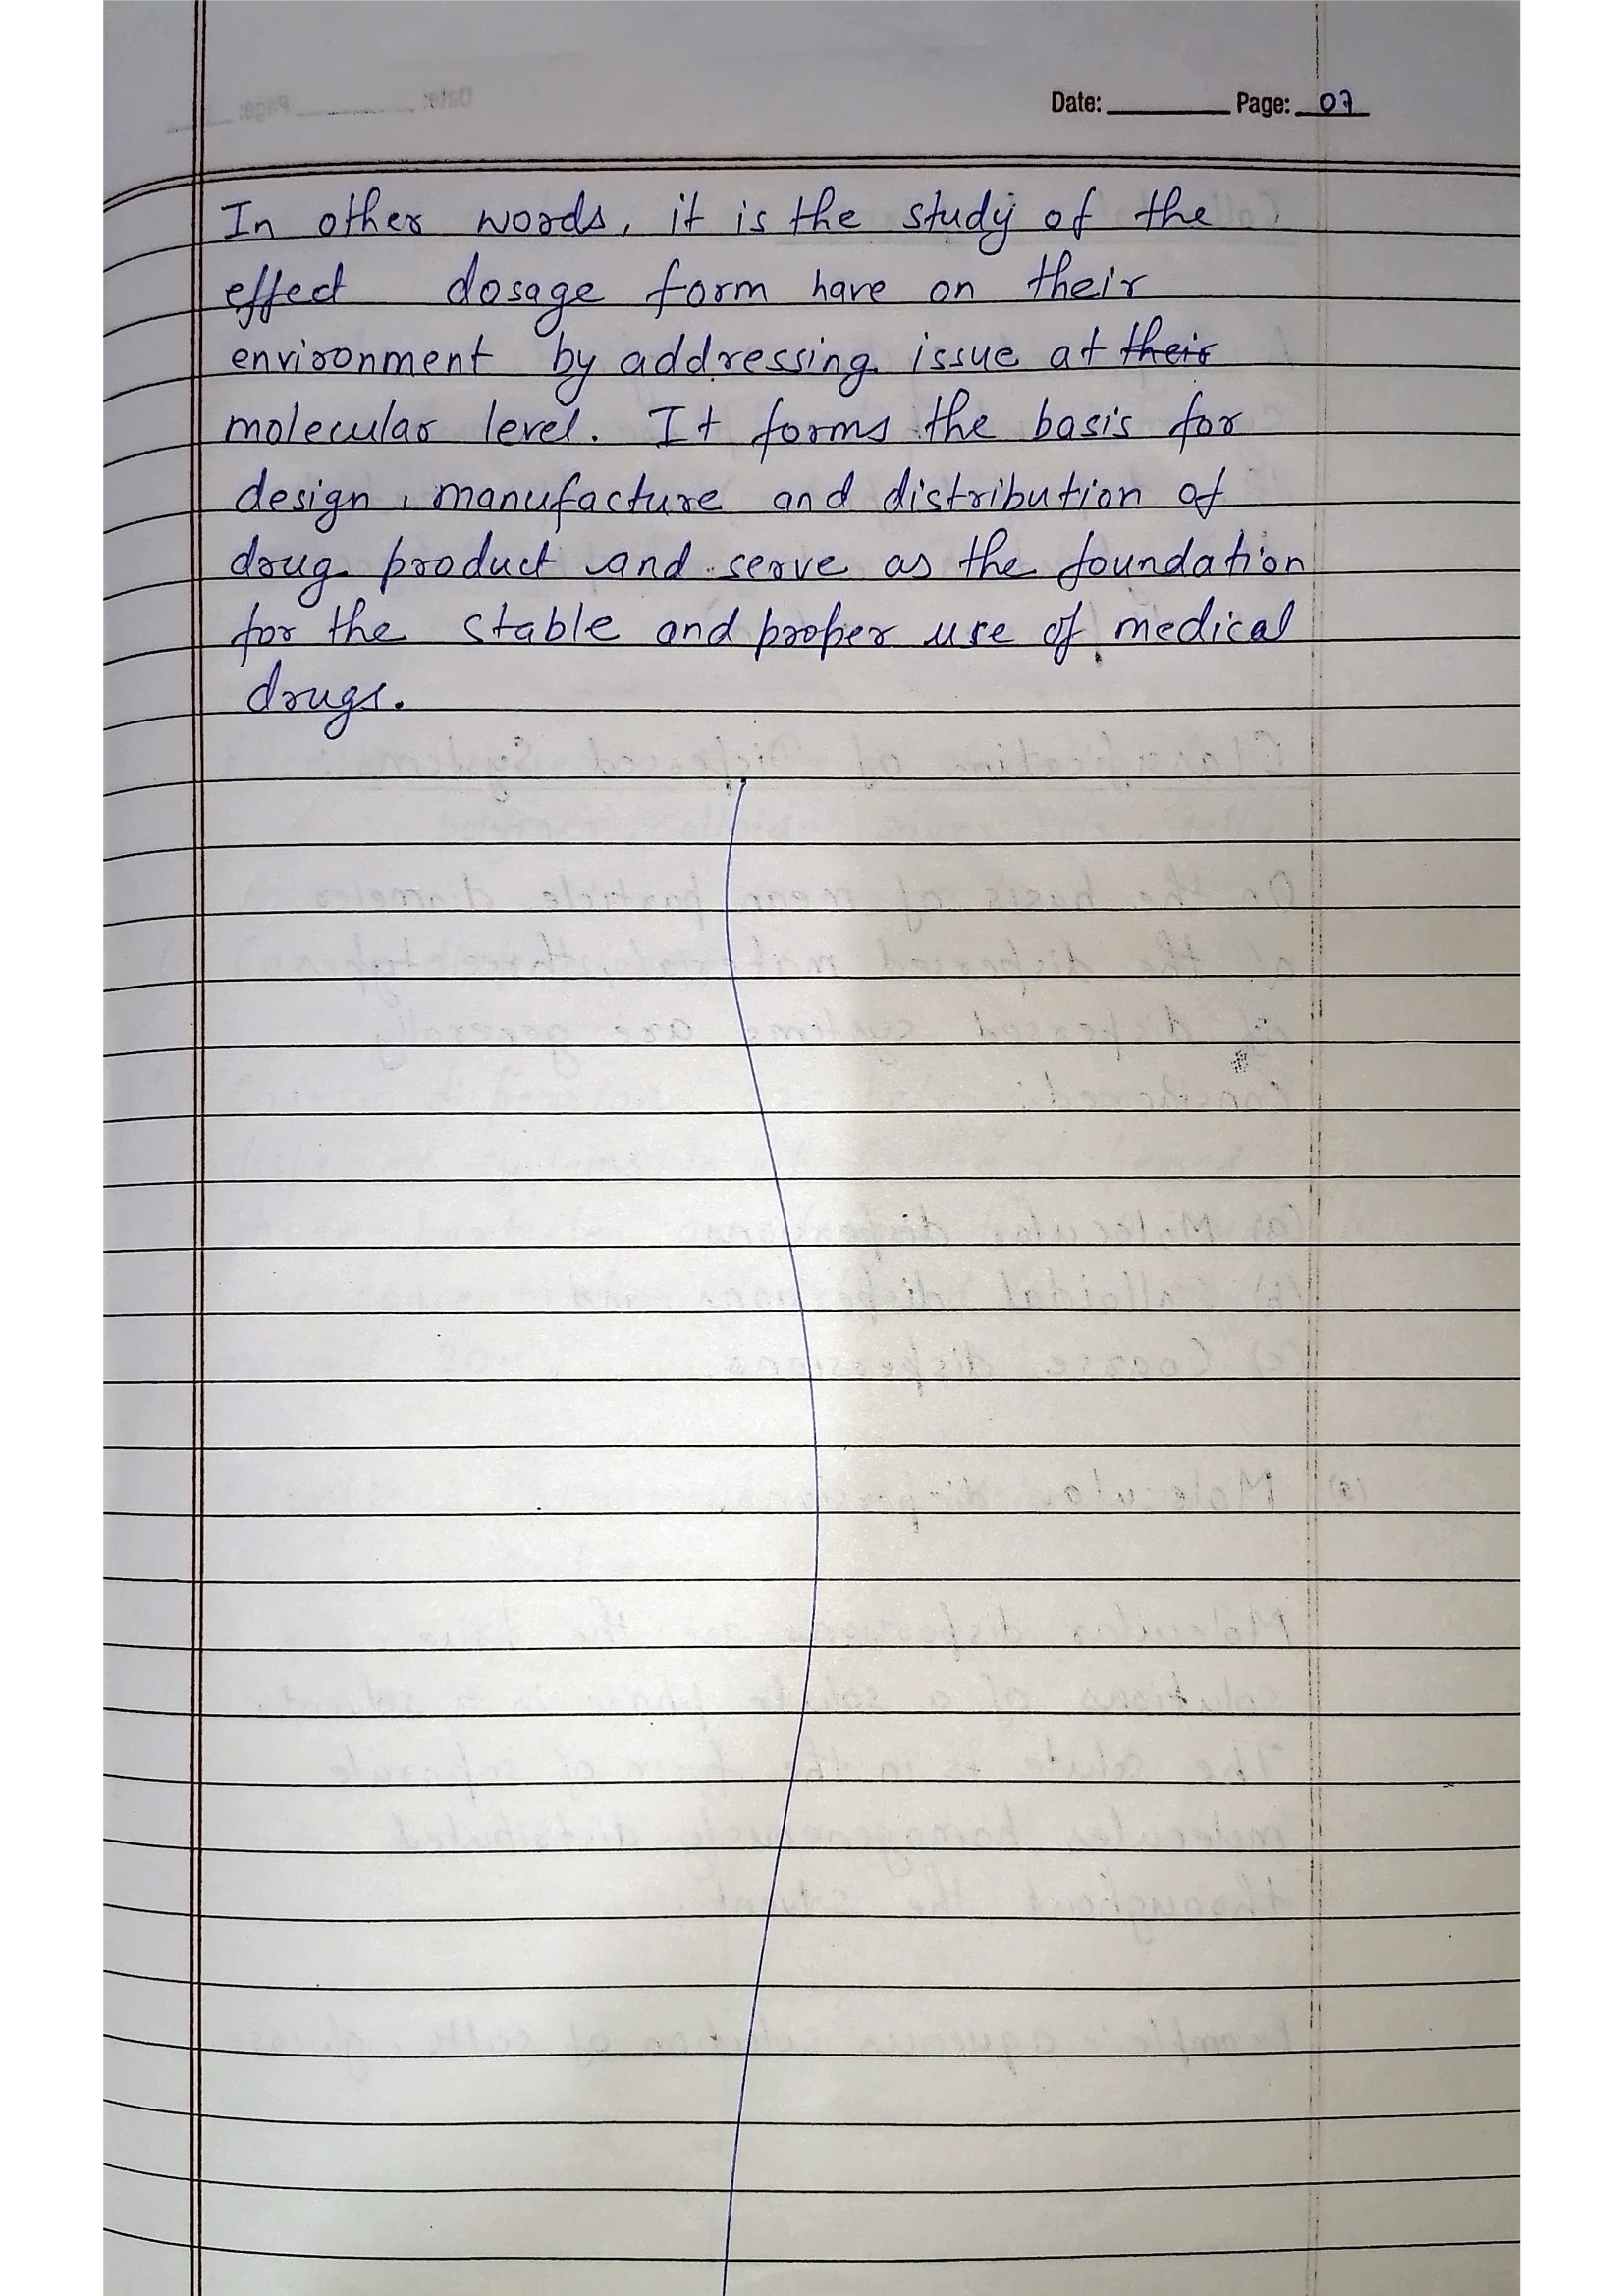 Date: Page: 07
In other words, it is the study of the
effect dosage form have on their
environment by addressing issue at their
molecular level. It forms the basis for
design, manufacture and distribution of
drug product and serve as the foundation
for the stable and proper use of medical
drugs.